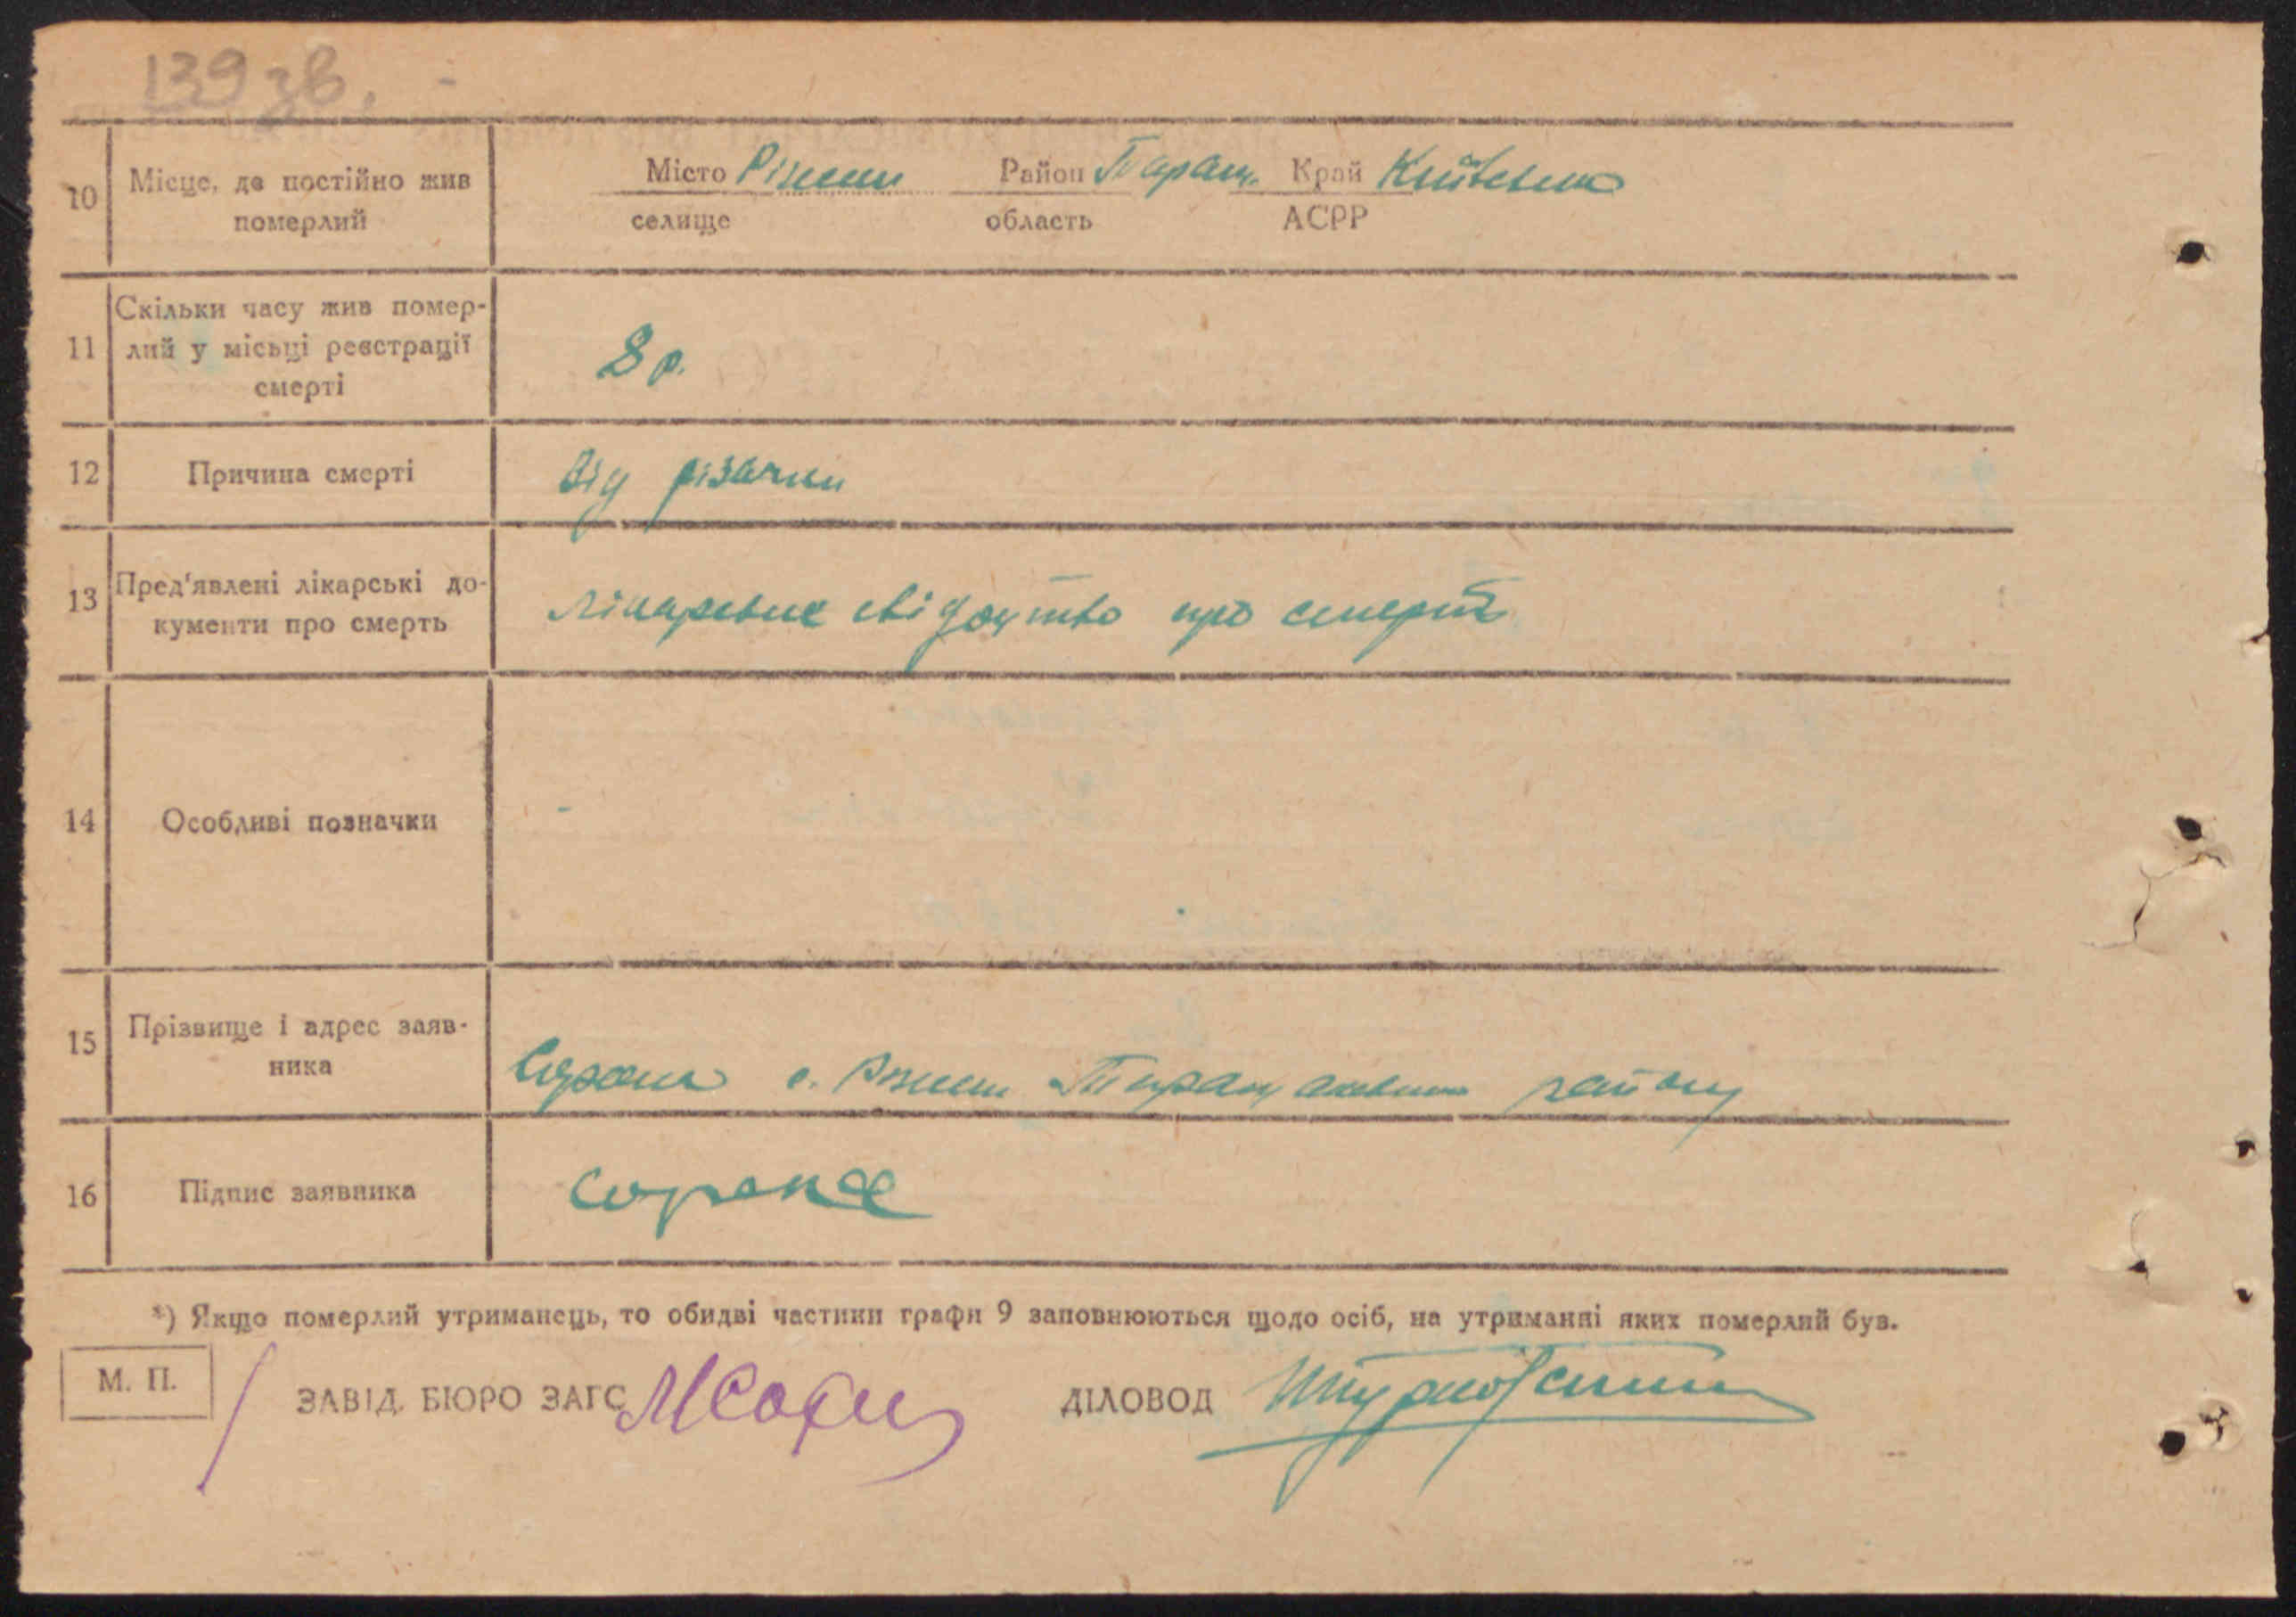 139 зв.
10 Місце, де постійно жив померлий
Місто Ріжки Район Таращ. Край Київська
селище область АСРР
11 Скільки часу жив помер-
лий у місьці реєстрації
смерті
8 р.
12 Причина смерті від різачки
13 Пред'явлені лікарські до-
кументи про смерть
лікарське свідоцтво про смерть
14 Особливі позначки -
15 Прізвище і адрес заяв-
ника
Сорока с. Ріжки Таращанського району
16 Підпис заявника Сорока
*) Якщо померлий утриманець, то обидві частини графи 9 заповнюються щодо осіб, на утриманні яких померлий був.
М. П. ЗАВІД. БЮРО ЗАГС ДІЛОВОД